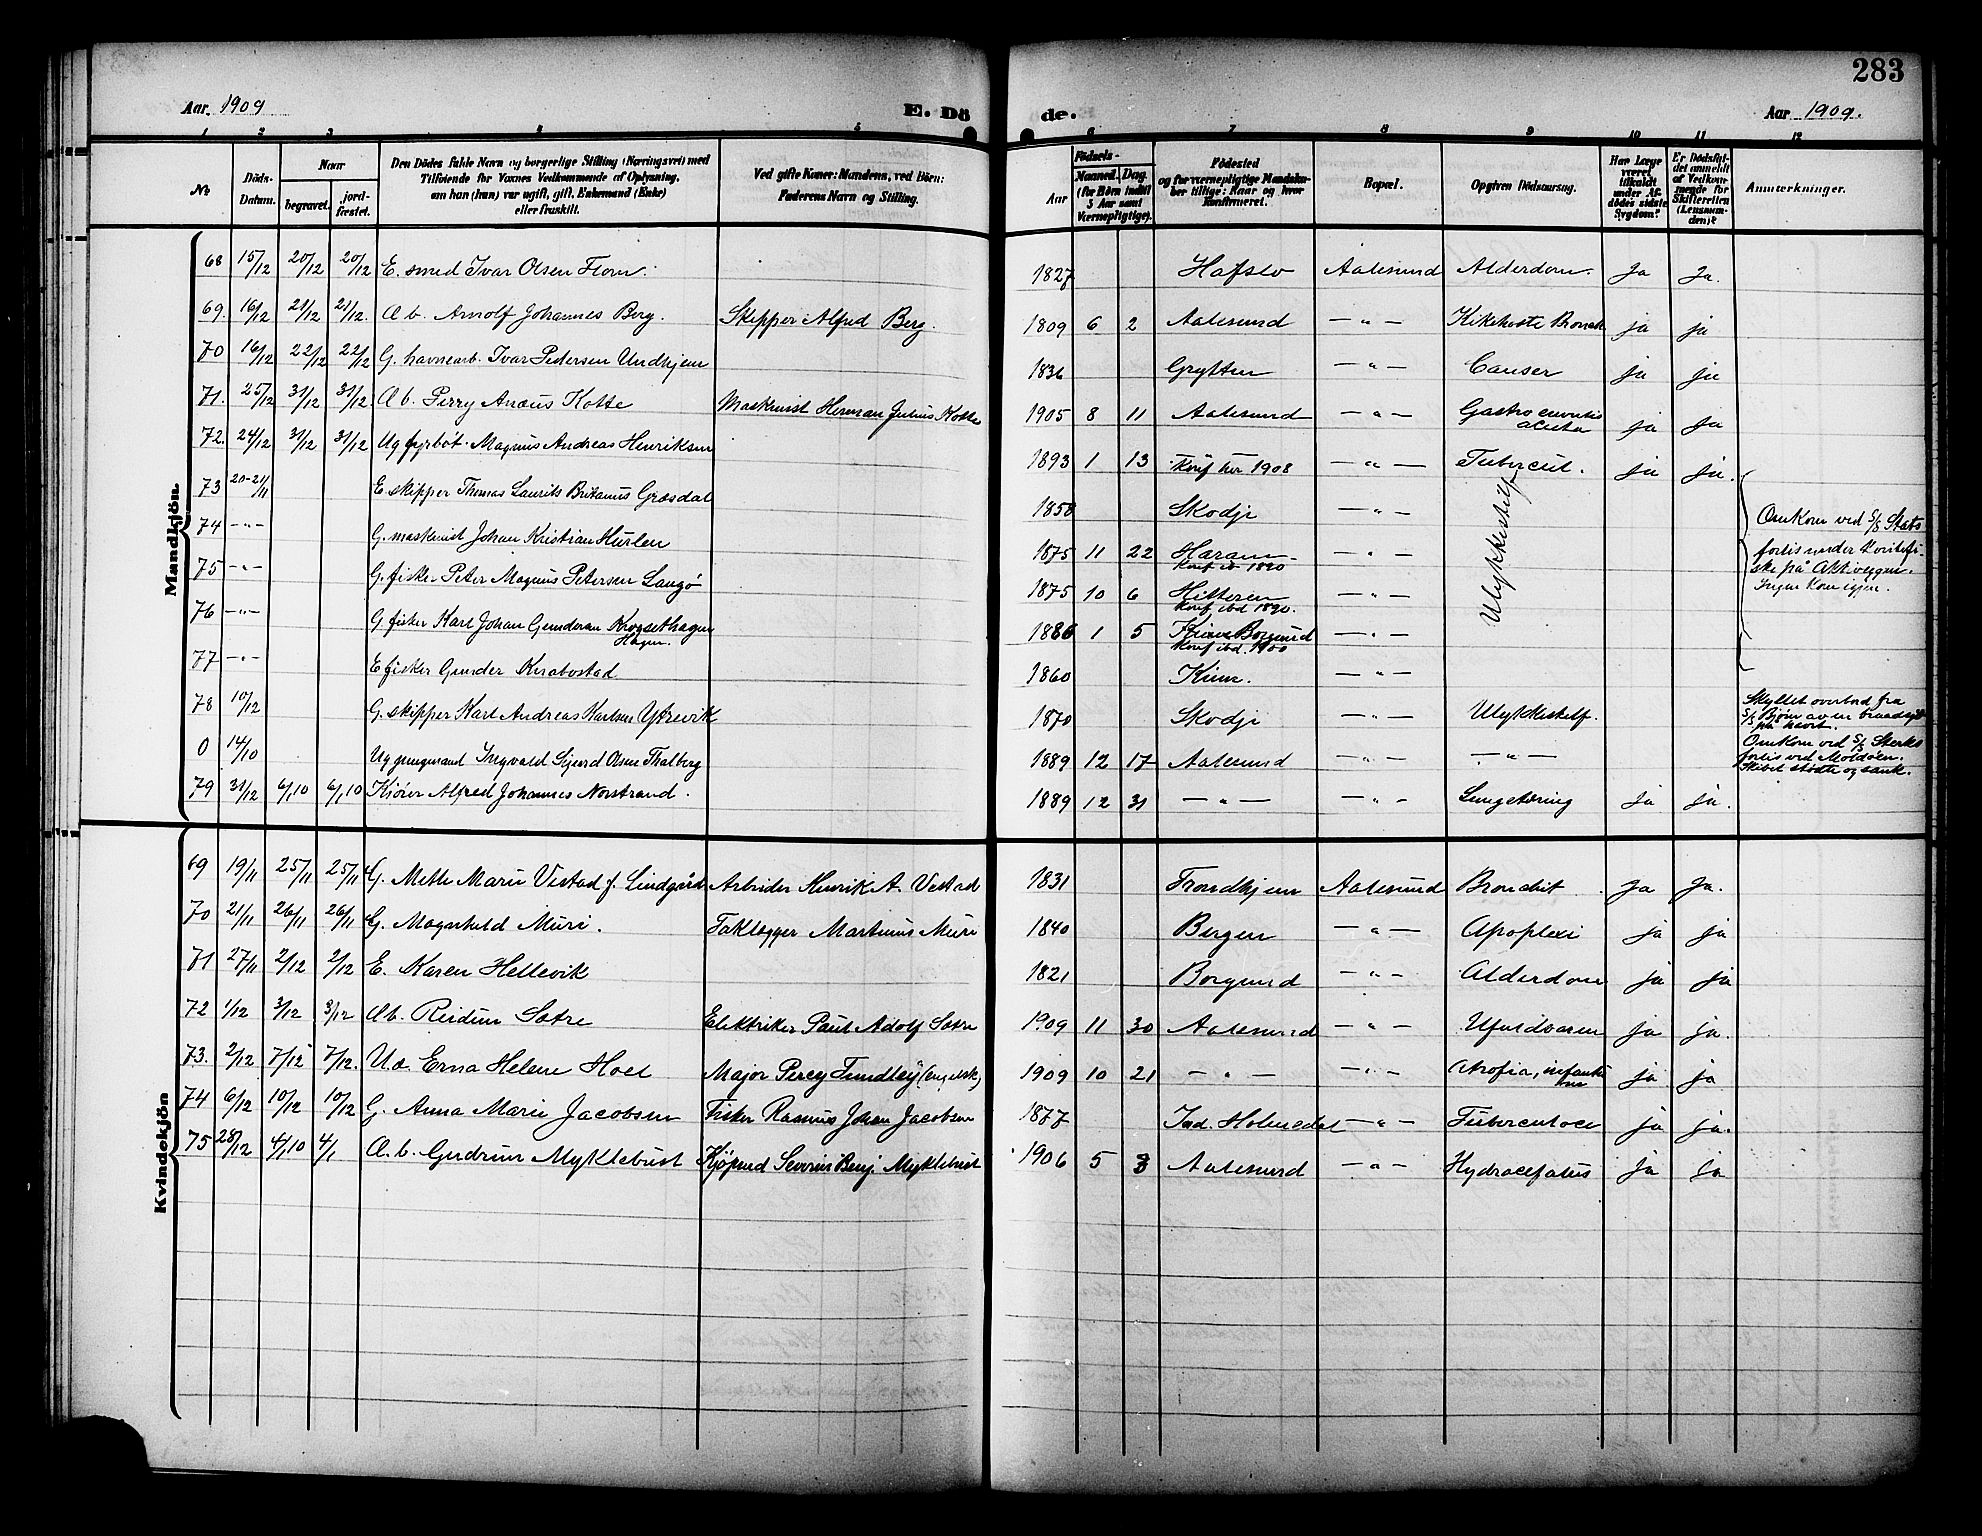 283
Aar 1909 E. Dö de. Aar 1909.
1 2 3 4 5 6 7 8 9 10 11 12
No
Döds-Datum.
Naar begravet. jord-fæstet.
Den Dödes fulde Navn og borgerlige Stilling (Næringsvei) med
Tilföiende for Voxnes Vedkommende af Oplysning,
om han (hun) var ugift, gift, Enkemand (Enke)
eller fraskilt.
Ved gifte Koner: Mandens, ved Börn:
Faderens Navn og Stilling.
Födsels-
Aar Maaned. Dag.
(for Börn indtil 5 Aar samt Værnepligtige).
Födested
og for værnepligtige Mandskaber tillige: Naar og hvor
konfirmeret.
Bopæl.
Opgiven Dödsaarsag.
Har Læge været tilkaldt under Afdödes sidste Sygdom?
Er Dödsfaldet anmeldt af Vedkommende for Skifteretten (Lensmanden)?
Anmærkninger.
Mandkjön.
68 15/12 20/12 20/12 E. smed Ivar Olsen Flom. 1827 Hafslo Aalesund Alderdom. Ja Ja.
69. 16/12 21/12 21/12. Æ b. Arnolf Johannes Berg. Skipper Alfred Berg. 1809 6 2 Aalesund — " — Kikehoste Bronch ja ja
70 16/12 22/12 22/12 G. havnearb. Ivar Petersen Undhjem 1836 Grytten — " — Canser ja ja
71. 25/12 31/12 31/12. Æ b. Perry Anæus Kotte Maskinist Herman Julius Kotte 1905 8 11 Aalesund — " — Gastro acuta ja ja
72. 24/12 31/12 31/12 Ug fyrböt. Magnus Andreas Henriksen 1893 1 13 Konf her 1908 — " — Tubercul. ja ja.
73 20-21/11 E skipper Thomas Laurits Britanus Græsdal 1858 Skodje — " — Ulykkestilf
74 — " — G. maskinist Johan Kristian Hurlen 1875 11 22 Haram Konf ib 1890 — " —
75 — " — G. fisker Peter Magnus Petersen Langö 1875 10 6 Hitteren Konf. ibd 1890. — " —
76 — " — G fisker Karl Johan Gundersen Krogsethagen Hagen. 1886 1 5 Borgund Konf ibd. 1900 — " —
77 — " — E fisker Gunder Knabostad 1860 Kinn. — " —
Omkom ved S/S Stats
fortis under
ske på Aktieeggen.
Ingen kom igjen.
78 10/12 G. skipper Karl Andreas Karlsen Ytrevik 1870 Skodje — " — Ulykkestilf. Skyllet overbord fra
S/S Björn av en braadsjö
på havet.
0 14/10 Ug gangmand Ingvald Sigurd Olsen Thalberg 1889 12 17 Aalesund — " — — " — Omkom ved S/S Sterks
fortis ved Moldöen.
Skibet stödte og sank.
79 31/12 6/1 10 6/1 10 Kjörer Alfred Johannes Norstrand. 1889 12 31 — " — — " — Lungetæring ja ja.
Kvindekjön
69 19/11 25/11 25/11 G. Mette Marie Vestad f. Lindgård Arbeider Henrik A. Vestad 1831 Trondhjem Aalesund Bronchit ja ja.
70 21/11 26/11 26/11 G. Magnhild Muri. Taklægger Martinus Muri 1840 Bergen — " — Apoplexi ja ja
71 27/11 2/12 2/12 E. Karen Hellevik 1821 Borgund — " — Alderdom ja ja
72 1/12 3/12 3/12 Æ b. Reidun Sætre Elektriker Paul Adolf Sætre 1909 11 30 Aalesund — " — Ufuldbaaren ja ja.
73. 2/12 7/12 7/12. U æ Erna Helene Hoel Major Percy Tindley (engelsk) 1909 10 21 — " — — " — Atrofia, infanti ja ja
74 6/12 10/12 10/12 G. Anna Marie Jacobsen Fisker Rasmus Johan Jacobsen 1877 Ind. Holmedal — " — Tuberculose ja ja.
75 28/12 4/1 10 4/1 Æ. b. Gudrun Myklebust Kjöpmd Severin Benj. Myklebust 1906 5 3 Aalesund — " — Hydrocefalus ja ja